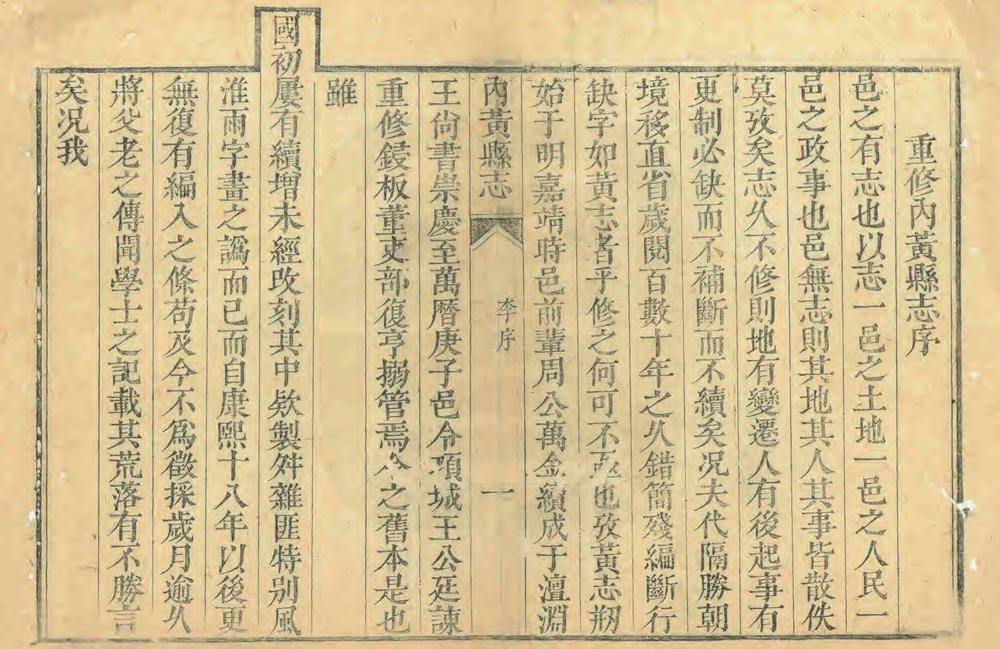 重修內黃縣志序
邑之有志也以志一邑之土地一邑之人民一
邑之政事也邑無志則其地其人其事皆散佚
莫攷矣志久不修則地有變遷人有後起事有
更制必缺而不補斷而不續矣况夫代隔勝朝
境移直省歲閱百數十年之久錯簡殘編斷行
缺字如黃志者乎修之何可不亟也攷黃志剏
始于明嘉靖時邑前輩周公萬金續成于澶淵
內黃縣志
李序
一
王尙書崇慶至萬曆庚子邑令項城王公廷諫
重修鋟板董吏部復亨搦管焉今之舊本是也
雖
國初屢有續增未經改刻其中欵製舛雜匪特别風
淮雨字畫之譌而已而自康熙十八年以後更
無復有編入之條苟及今不爲徵採歲月逾久
將父老之傳聞學士之記載其荒落有不勝言
矣况我